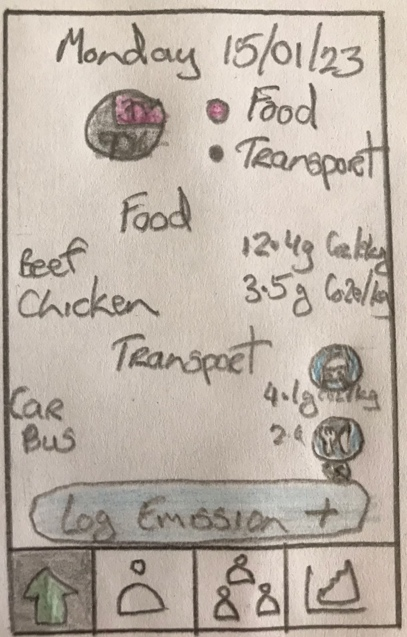 Monday 15/01/23
Food
Transport
Food
Beef 12.4g Co2e/kg
Chicken 3.5g Co2e/kg
Transport
Car 4.1g
Bus
Log Emission +